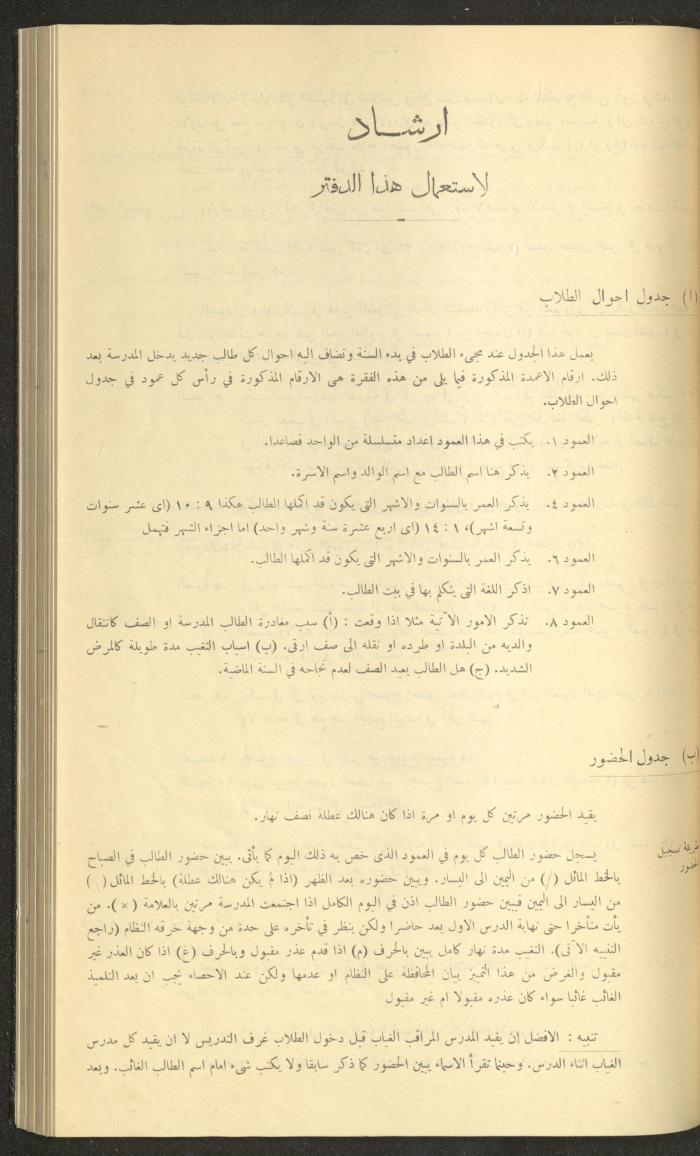 ارشاد
لاستعمال هذا الدفتر
(ا) جدول احوال الطلاب
يعمل هذا الجدول عند مجىء الطلاب في بدء السنة وتضاف اليه احوال كل طالب جديد يدخل المدرسة بعد
ذلك. ارقام الاعمدة المذكورة فيما يلى من هذه الفقرة هى الارقام المذكورة في رأس كل عمود في جدول
احوال الطلاب.
العمود ١. يكتب في هذا العمود اعداد متسلسلة من الواحد فصاعدا.
العمود ٢. يذكر هنا اسم الطالب مع اسم الوالد واسم الاسرة.
العمود ٤. يذكر العمر بالسنوات والاشهر التى يكون قد اكملها الطالب هكذا ٩ : ١٠ (اى عشر سنوات
وتسعة اشهر)، ١ : ١٤ (اى اربع عشرة سنة وشهر واحد) اما اجزاء الشهر فتهمل
العمود ٦. يذكر العمر بالسنوات والاشهر التى يكون قد اكملها الطالب.
العمود ٧. اذكر اللغة التى يتكلم بها في بيت الطالب.
العمود ٨. تذكر الامور الآتية مثلا اذا وقعت : (أ) سبب مغادرة الطالب المدرسة او الصف كانتقال
والديه من البلدة او طرده او نقله الى صف ارقى. (ب) اسباب التغيب مدة طويلة كالمرض
الشديد. (ج) هل الطالب يعيد الصف لعدم نجاحه في السنة الماضية.
(ب) جدول الحضور
يقيد الحضور مرتين كل يوم او مرة اذا كان هنالك عطلة نصف نهار.
طريقة تسجيل
الحضور
يسجل حضور الطالب كل يوم في العمود الذى خص به ذلك اليوم كما يأتى. يبين حضور الطالب في الصباح
بالخط المائل (/) من اليمين الى اليسار. ويبين حضوره بعد الظهر (اذا لم يكن هنالك عطلة) بالخط المائل (\)
من اليسار الى اليمين فيبين حضور الطالب اذن في اليوم الكامل اذا اجتمعت المدرسة مرتين بالعلامة (×). من
يأت متأخرا حتى نهاية الدرس الاول يعد حاضرا ولكن ينظر في تأخره على حدة من وجهة خرقه النظام (راجع
التنبيه الآتى). التغيب مدة نهار كامل يبين بالحرف (م) اذا قدم عذر مقبول وبالحرف (غ) اذا كان العذر غير
مقبول والغرض من هذا التمييز بيان المحافظة على النظام او عدمها ولكن عند الاحصاء يجب ان يعد التلميذ
الغائب غائبا سواء كان عذره مقبولا ام غير مقبول
تنبيه : الافضل ان يقيد المدرس المراقب الغياب قبل دخول الطلاب غرف التدريس لا ان يقيد كل مدرس
الغياب اثناء الدرس. وحينما تقرأ الاسماء يبين الحضور كما ذكر سابقا ولا يكتب شىء امام اسم الطالب الغائب. وبعد